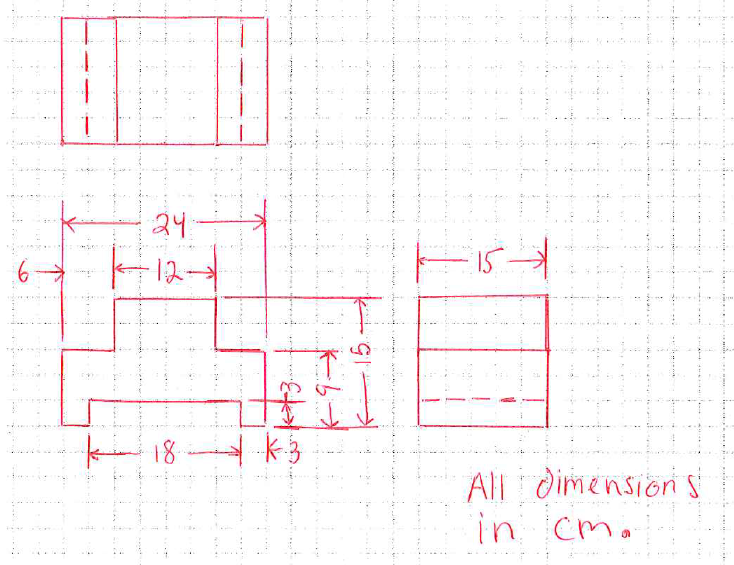 24
6 12 15
15
9
3
18 3
All dimensions
in cm.